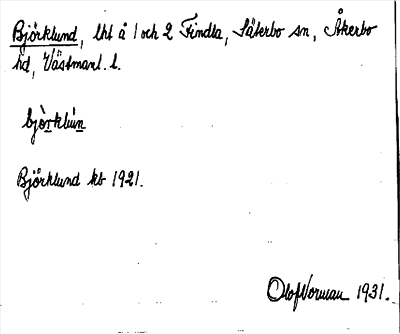 Björklund, lht å 1 och 2 Findla, Säterbo sn, Åkerbo
hd, Västmanl. l.
bjòrkliún
Björklund kb 1921.
Olof Norman 1931.